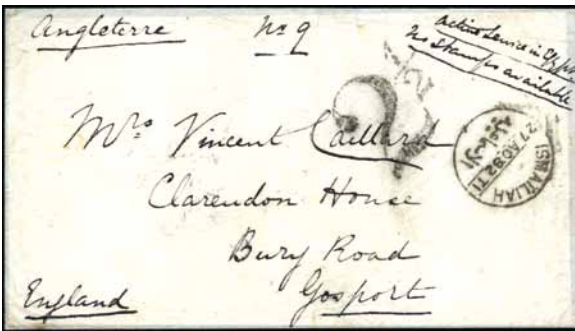 Angleterre No 9
Active Service in Egypt
No stamps available
2 1/2
Mrs Vincent Caillard
Clarendon House
Bury Road
Gosport
England
ISMAILIAH
27 AO 82 T1
الاسماعيلية